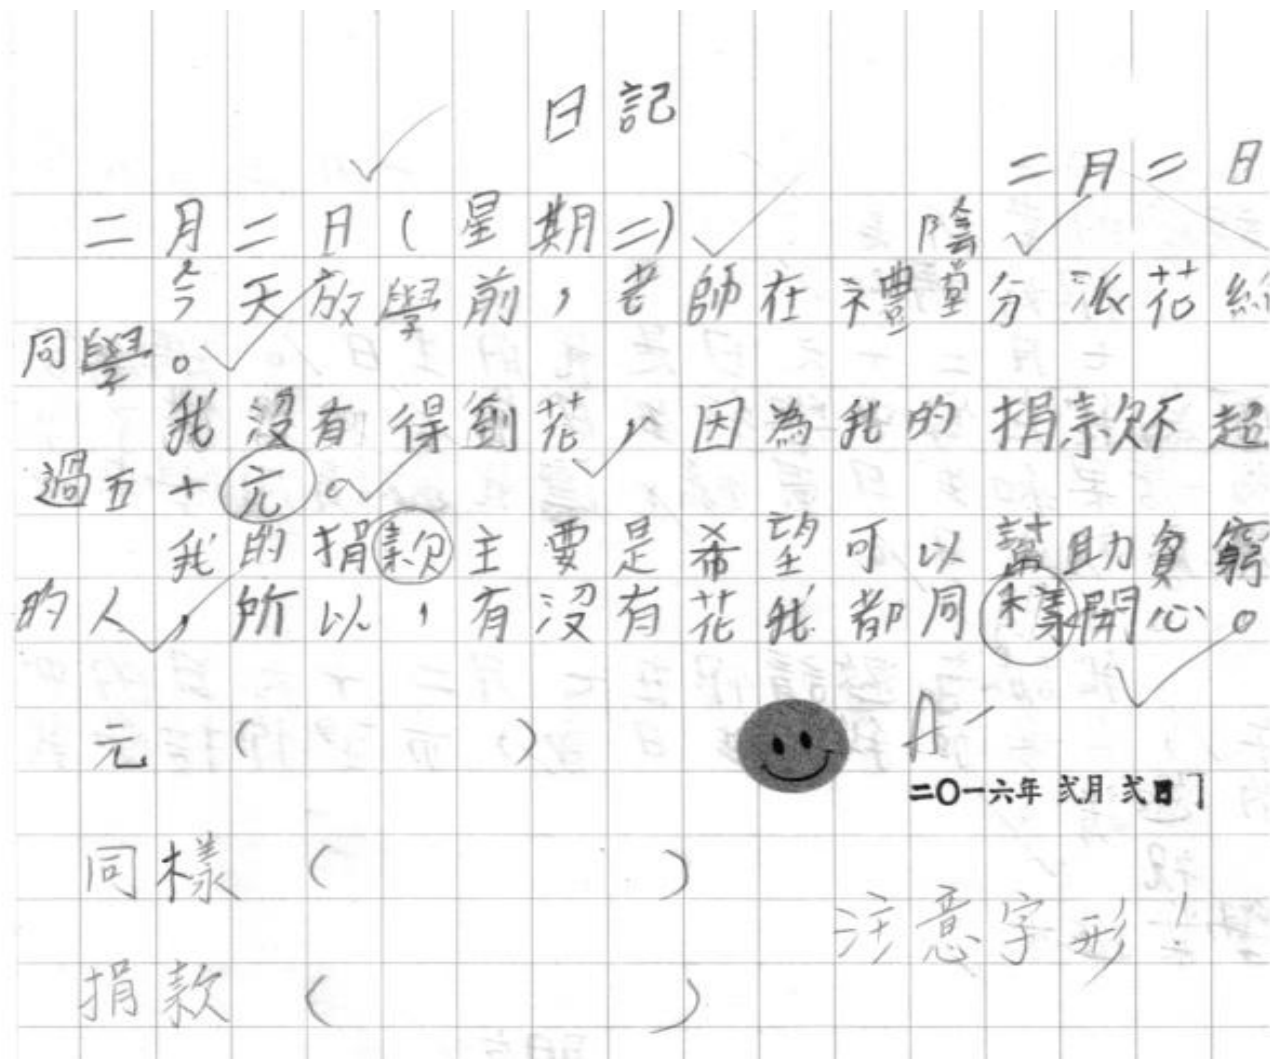 日記
二月二日
二月二日(星期二) 陰
今天放學前，老師在禮堂分派花給
同學。
我沒有得到花，因為我的捐款不超
過五十元。
我的捐款主要是希望可以幫助貧窮
的人，所以，有沒有花我都同樣開心。
元( )
A-
二〇一六年 弍月 弍日
同樣( )
注意字形！
捐款( )